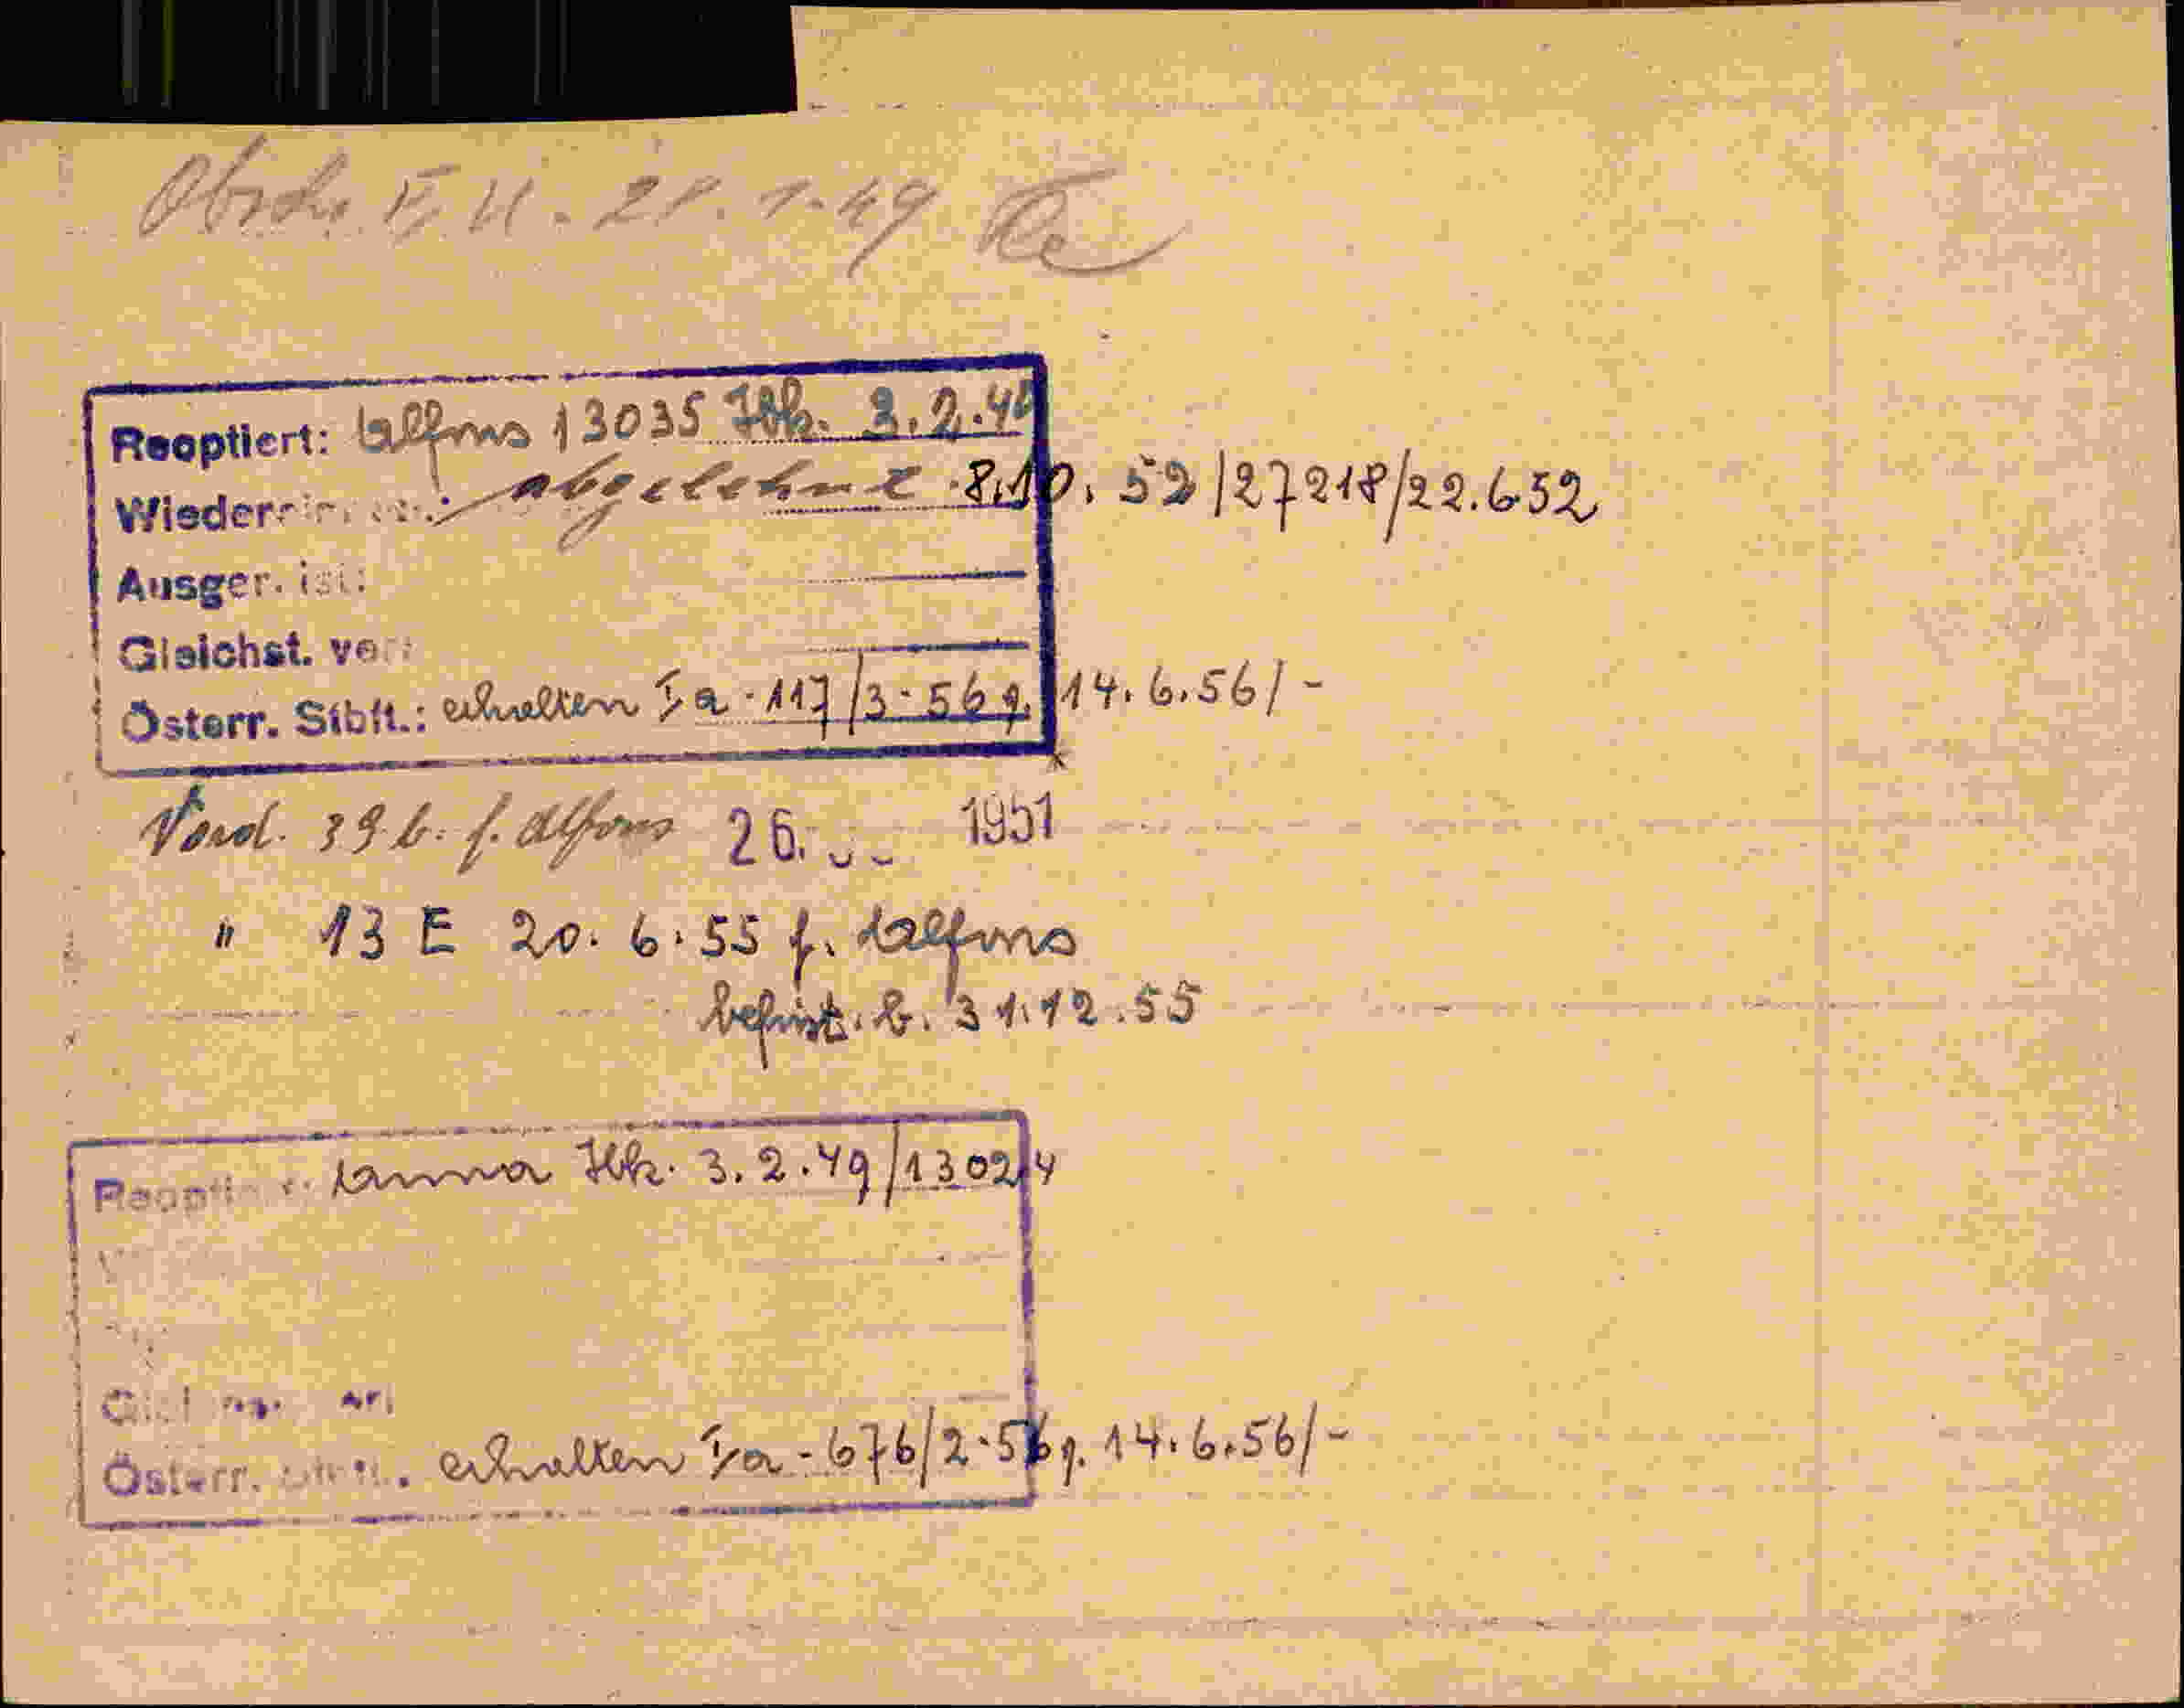 1.49
Reoptiert: Alfons 13035 Hk. 3.2.49
abgelehnt 8.10.52/27218/22.652
Ausger. ist:
Gleichst.
Österr. Stbft.: erhalten Ia-117/3-56 g. 14.6.56/-
Vord. 39 b. f. Alfons 26. 1951
" 13 E 20.6.55 f. Alfons
befrist. b. 31.12.55
Anna Hk. 3.2.49/13024
Österr. erhalten Ia-676/2-56 g. 14.6.56/-